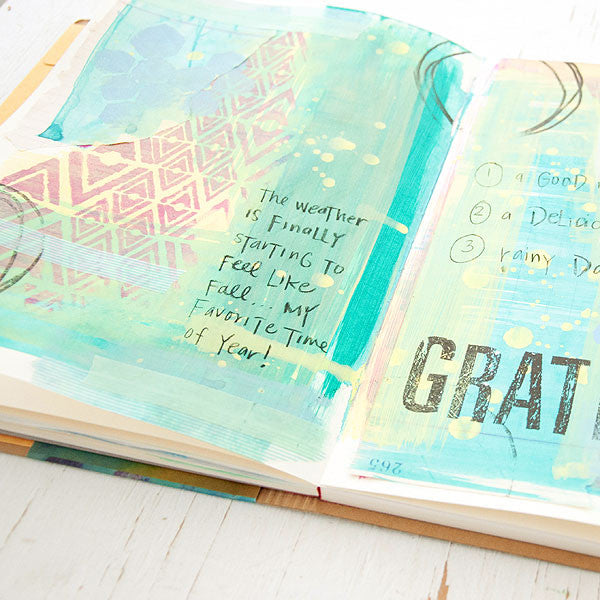 The weather
is Finally
starting to
Feel Like
Fall... My
Favorite Time
of Year!
1 a Good
2 a
3 rainy
GRAT
265